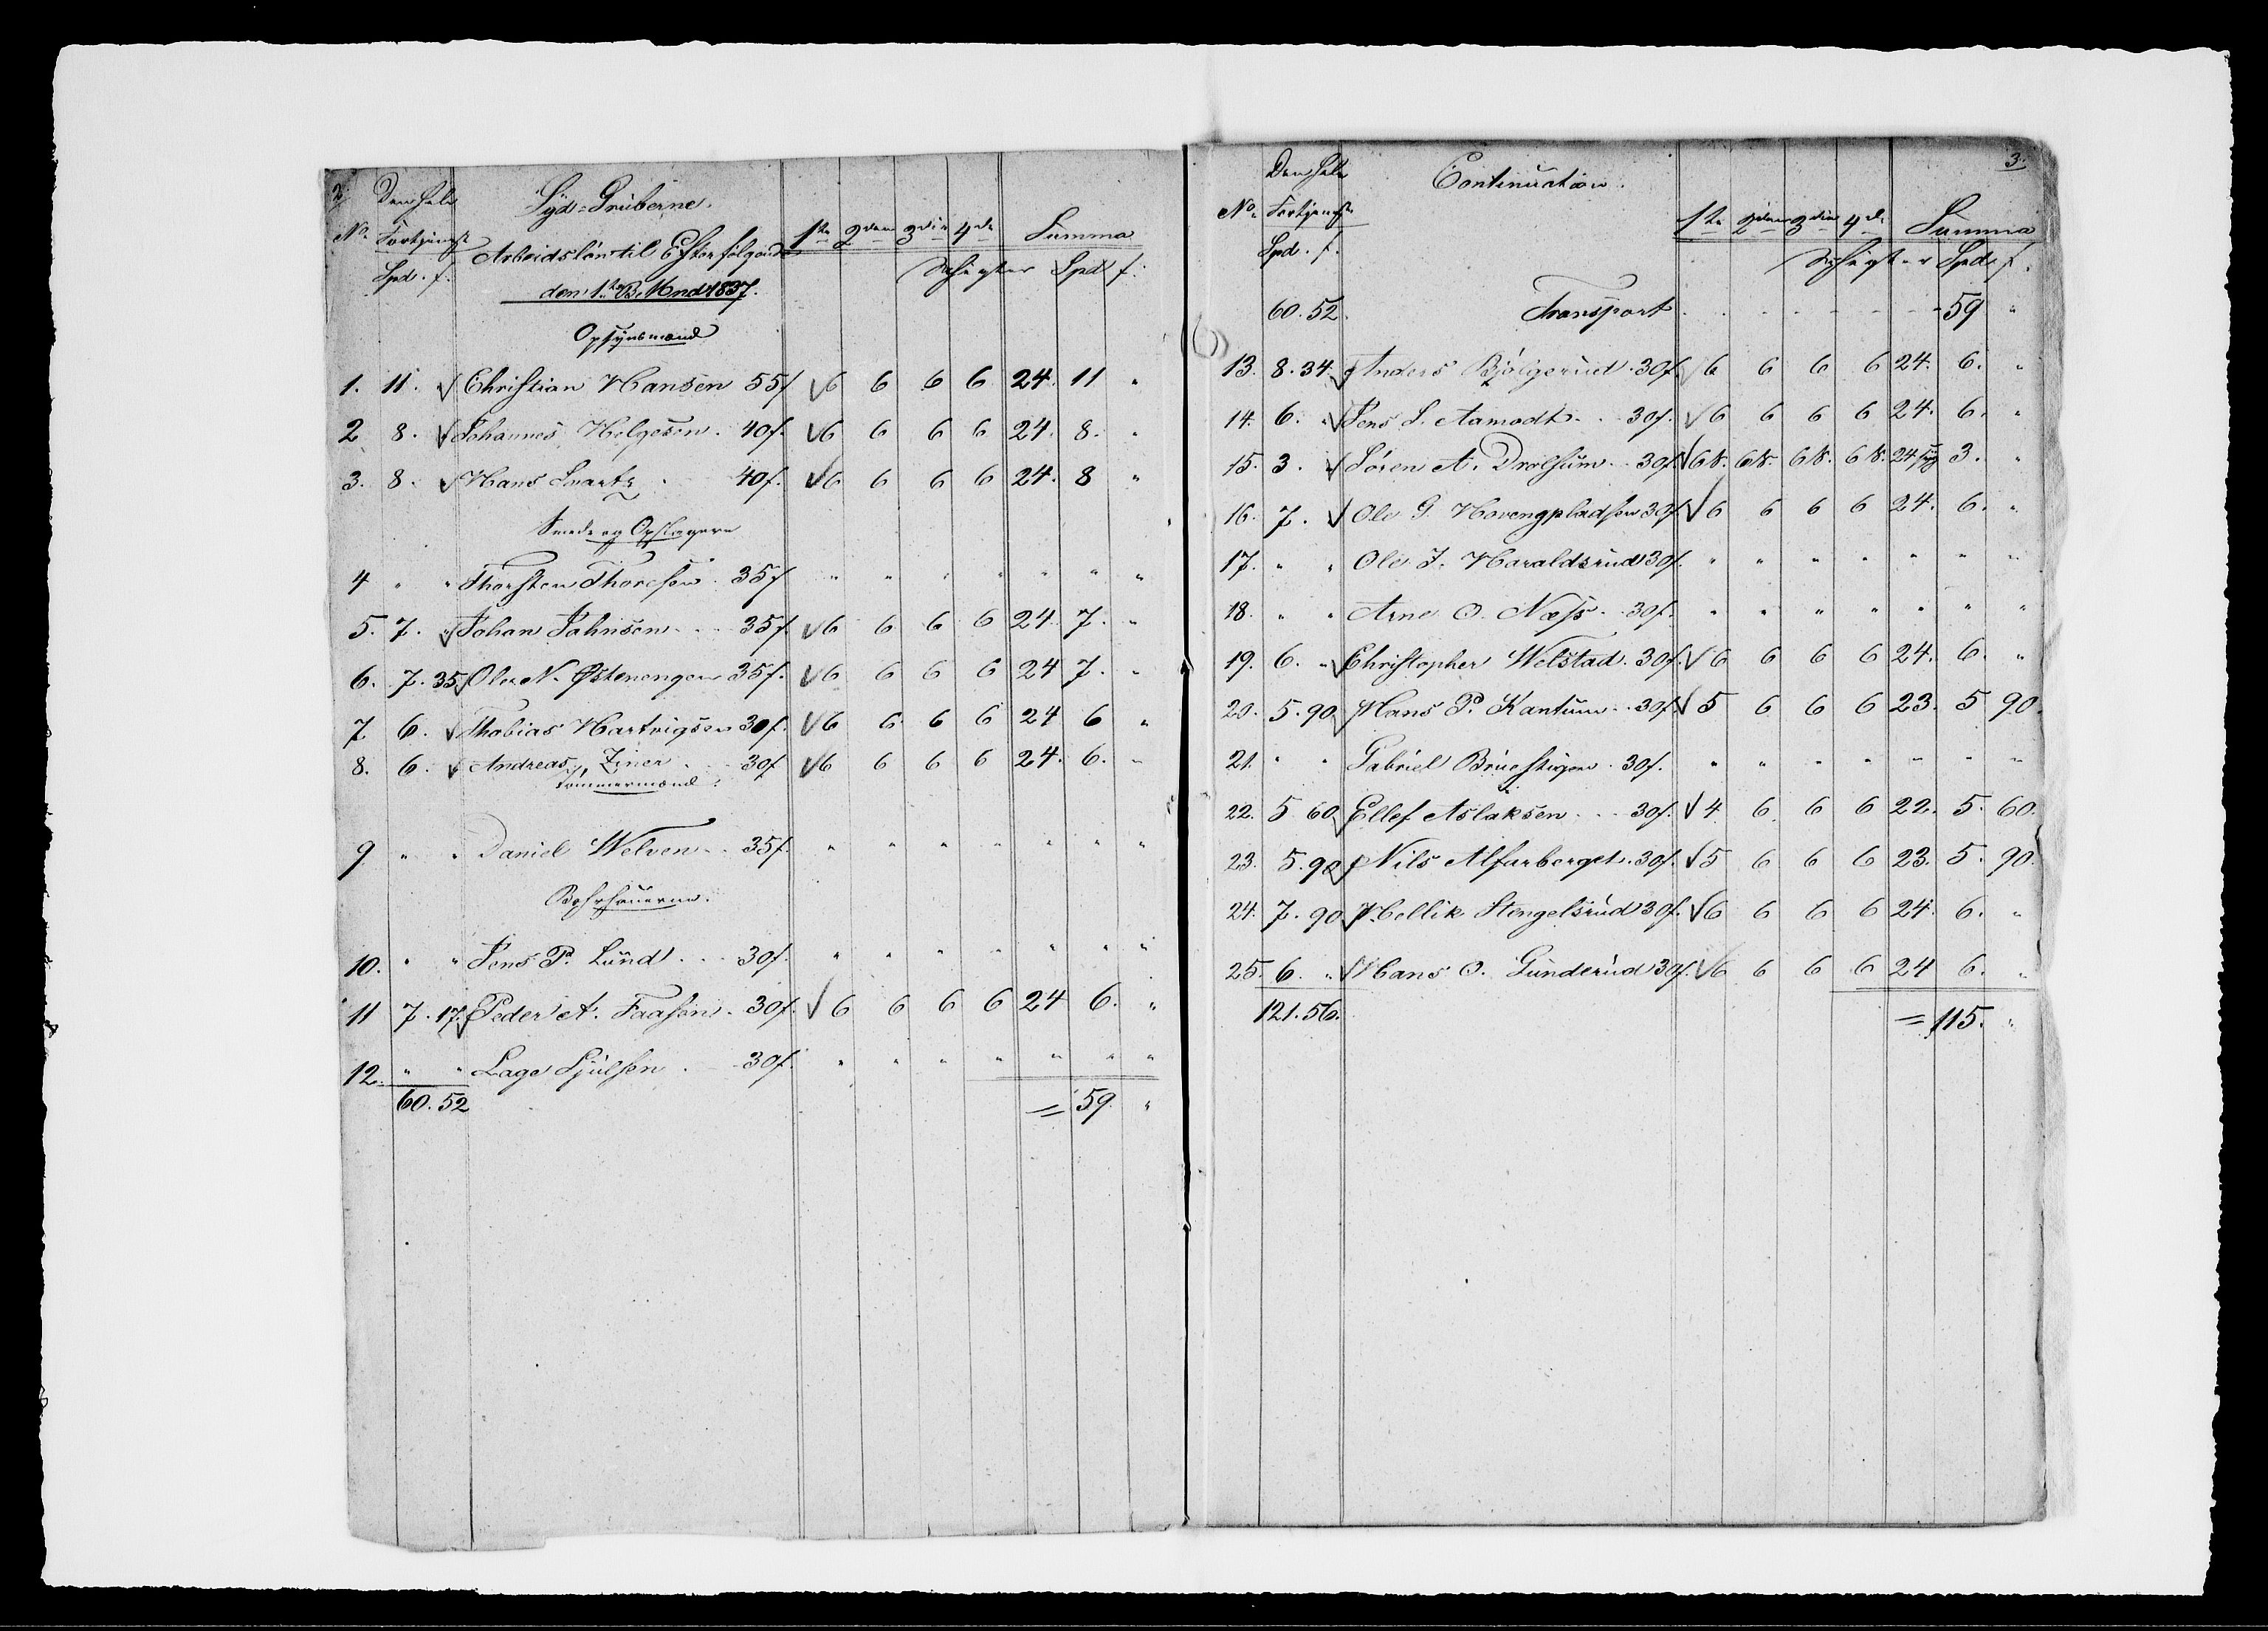 2
Den hele Syd-Gruberne.
No. Fortjeneste Arbeidsløn til Efterfølgende 1ste 2den 3die 4de Summa
Spd. f. den 1ste B. Mnd 1837. Schigter Spd f.
Opsynsmænd
1. 11. " Christian Hansen 55f 6 6 6 6 24. 11 "
2 8. " Johannes Helgesen. 40f. 6 6 6 6 24. 8. "
3. 8. " Hans Svartz 40f. 6 6 6 6 24. 8 "
Smede og Opslagere
4 " " Thorsten Thoresen. 35f " " " " " " "
5. 7. " Johan Jahnsen 35f. 6 6 6 6 24. 7. "
6. 7. 35 Ole N. Østenengen 35f. 6 6 6 6 24 7. "
7. 6. Thobias Hartvigsen 30f. 6 6 6 6 24 6 "
8. 6. " Andreas Ziner 30f 6 6 6 6 24. 6. "
Tømmermænd.
9 " " Daniel Welven 35f. " " " " " " "
Bohrhauerne.
10. " " Jens P. Lund 30f. " " " " " " "
11 7. 17. Peder A. Faasen. 30f. 6 6 6 6 24 6. "
12. " " Lage Sjulsen 30f. " " " " " " "
60. 52 = 59. "
3.
Den hele Continuation.
No. Fortjeneste 1ste 2den 3die 4de Summa
Spd. f. Schigter Spd f.
60. 52. Transport 59 "
13. 8. 34. Anders Bjølgerud. 30f. 6 6 6 6 24. 6. "
14. 6. " Jens L. Aamodt. 30f. 6 6 6 6 24. 6. "
15. 3. " Søren A. Drolsum 30f. 6 S. 6 S. 6 S. 6 S. 24 syg 3. "
16. 7. Ole G Hovengpladsen 30f. 6 6 6 6 24. 6. "
17. " " Ole J. Haraldsrud 30f. " " " " " " "
18. " " Arne O. Næss. 30f. " " " " " " "
19. 6. " Christopher Welstad. 30f. 6 6 6 6 24. 6. "
20. 5. 90. Hans P. Kantum. 30f. 5 6 6 6 23. 5 90.
21. " " Gabriel Bruestigen. 30f. " " " " " " "
22. 5 60. Ellef Aslaksen 30f. 4 6 6 6 22. 5. 60.
23. 5. 90 Nils Alfarberget. 30f. 5 6 6 6 23. 5. 90.
24. 7. 90. Hellik Stengelsrud 30f. 6 6 6 6 24. 6. "
25. 6. " Hans O. Gunderud 30f. 6 6 6 6 24 6. "
121. 56. = 115. "